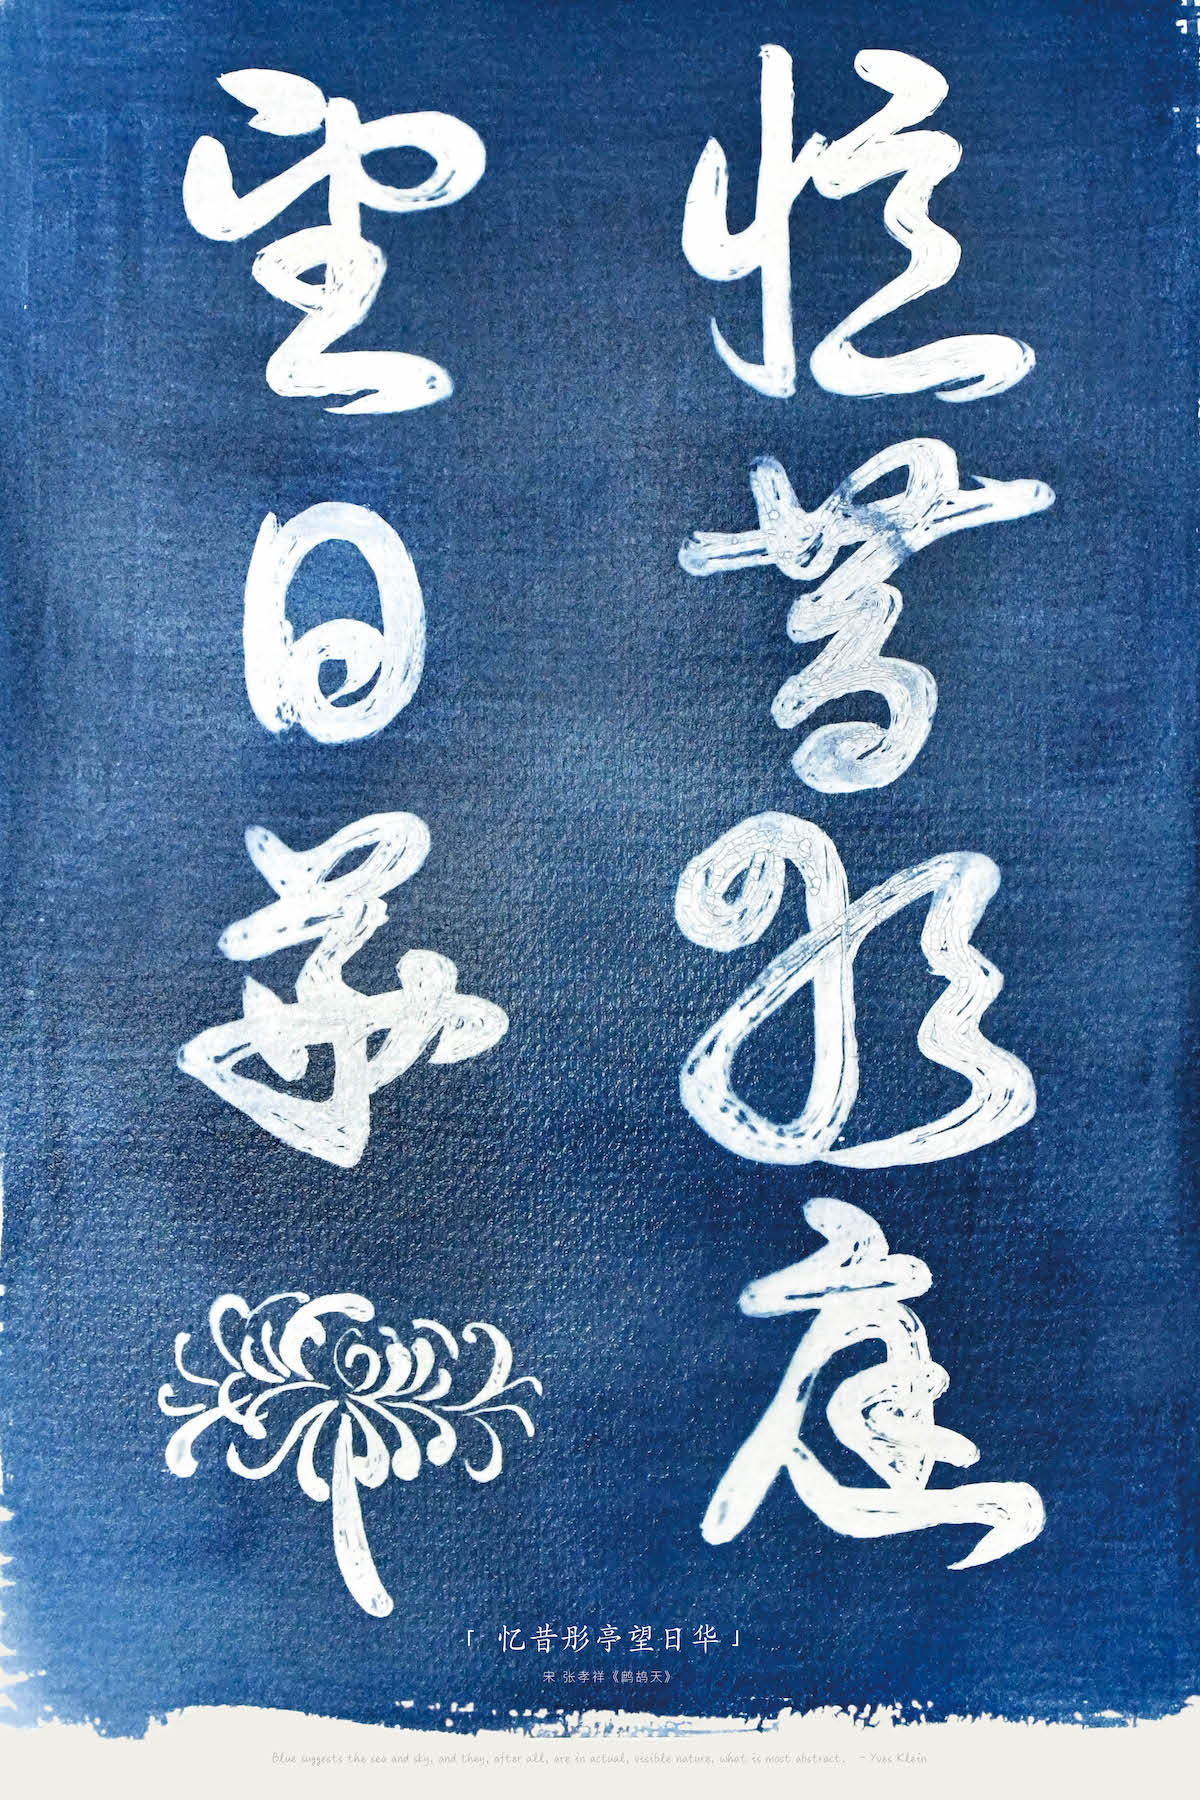 憶昔彤庭
望日華
「 忆昔彤亭望日华」
宋.张孝祥《鹧鸪天》
Blue suggests the sea and sky, and they, after all, are in actual, visible nature, what is most abstract. - Yves Klein